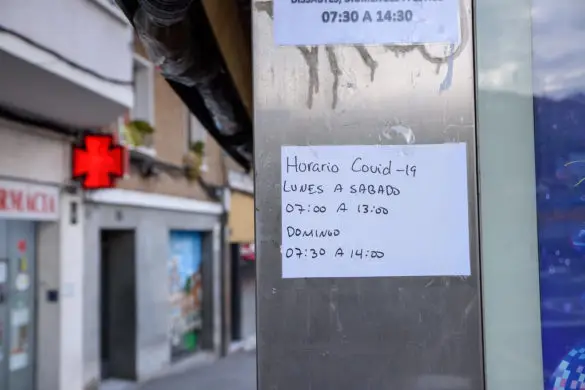 07:30 A 14:30
Horario Covid-19
LUNES A SABADO
07:00 A 13:00
DOMINGO
07:30 A 14:00
FARMÀCIA